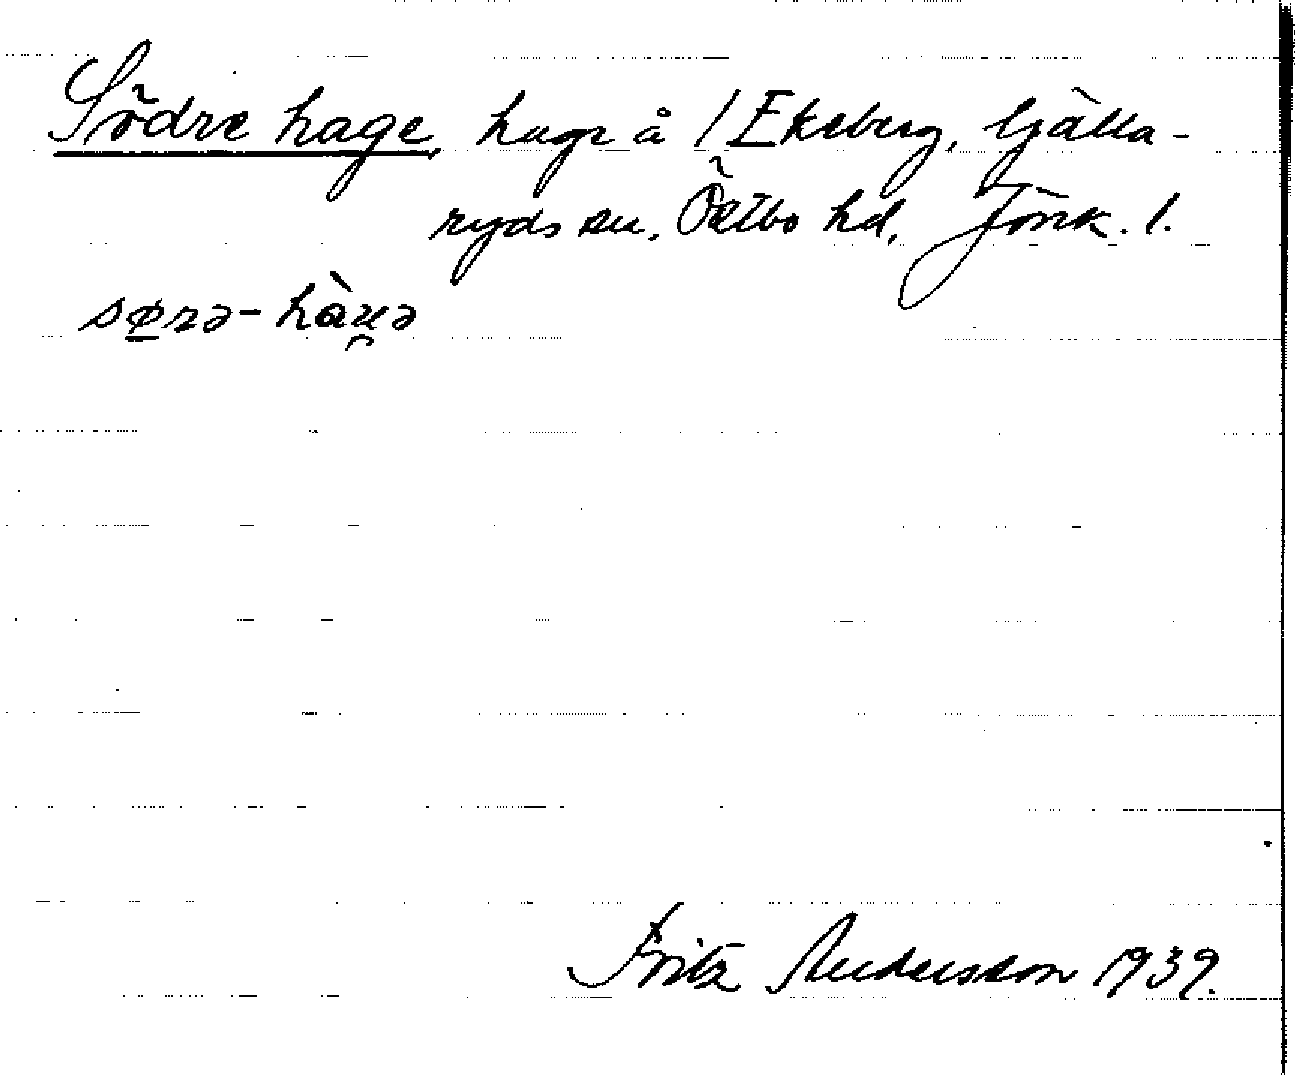 Södre hage, hage å /1 Ekeberg, Gälla-
ryds sn. Östbo hd, Jönk. l.
Fritz Andersson 1939.